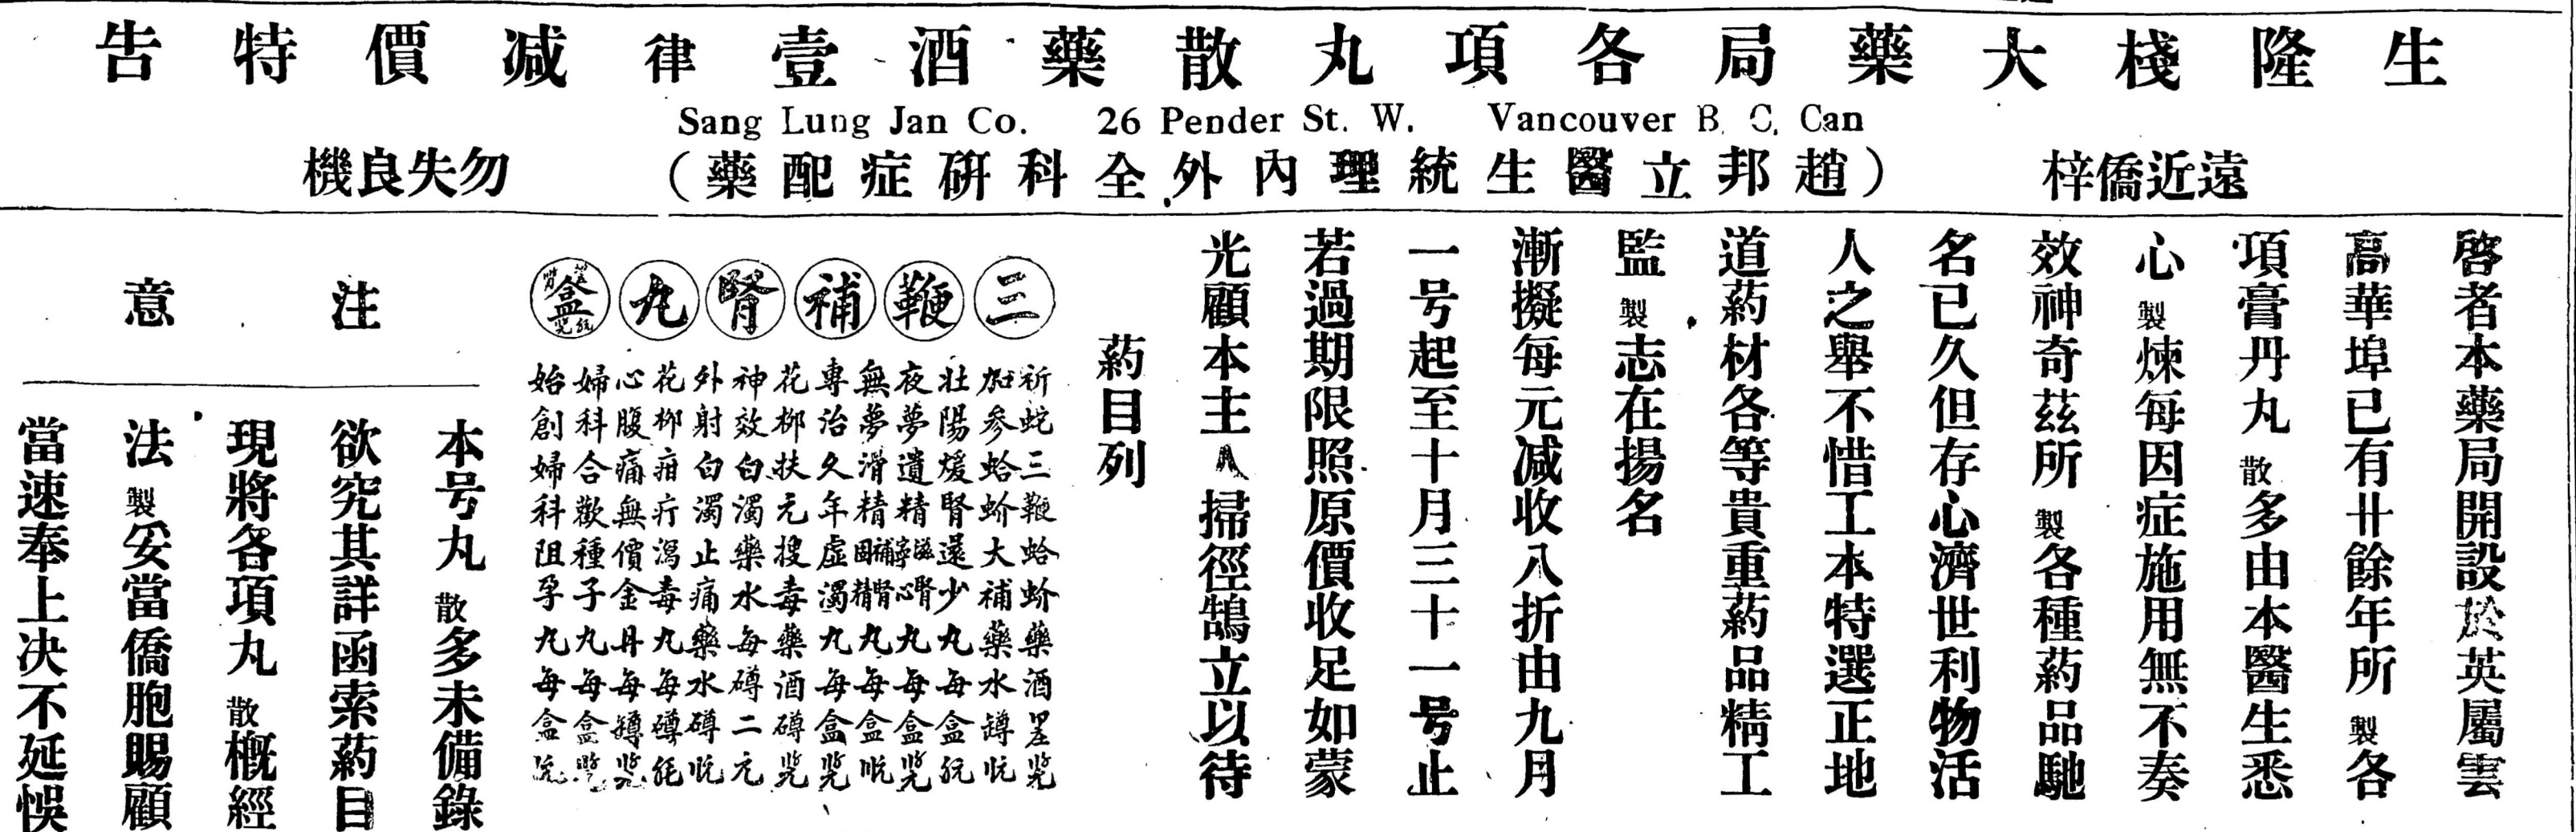 生隆棧大藥局各項丸散藥酒壹律減價特告
Sang Lung Jan Co. 26 Pender St. W. Vancouver B. C. Can
遠近僑梓
(趙邦立醫生統理內外全科研症配藥)
勿失良機
啓者本藥局開設於英屬雲
高華埠已有卄餘年所製各
項膏丹丸散多由本醫生悉
心製煉每因症施用無不奏
效神奇茲所製各種葯品馳
名已久但存心濟世利物活
人之舉不惜工本特選正地
道葯材各等貴重葯品精工
監製志在揚名
漸擬每元減收八折由九月
一号起至十月三十一号止
若過期限照原價收足如蒙
光顧本主人掃徑鵠立以待
葯目列
三鞭補腎丸
祈蛇三鞭蛤蚧藥酒
加參蛤蚧大補藥水罇
壯陽煖腎還少丸每盒
夜夢遺精滋腎寧心丸每盒
無夢滑精補腎固精丸每盒
專治久年虛濁丸每盒
花柳扶元搜毒藥酒磚
神效白濁藥水每磚二元
外射白濁止痛藥水磚
花柳疳疔瀉毒丸每磚
心腹痛無價金丹每罇
婦科合歡種子丸每盒
始創婦科阻孕丸每盒
注意
本号丸散多未備錄
欲究其詳函索葯目
現將各項丸散概經
法製妥當僑胞賜顧
當速奉上决不延悞